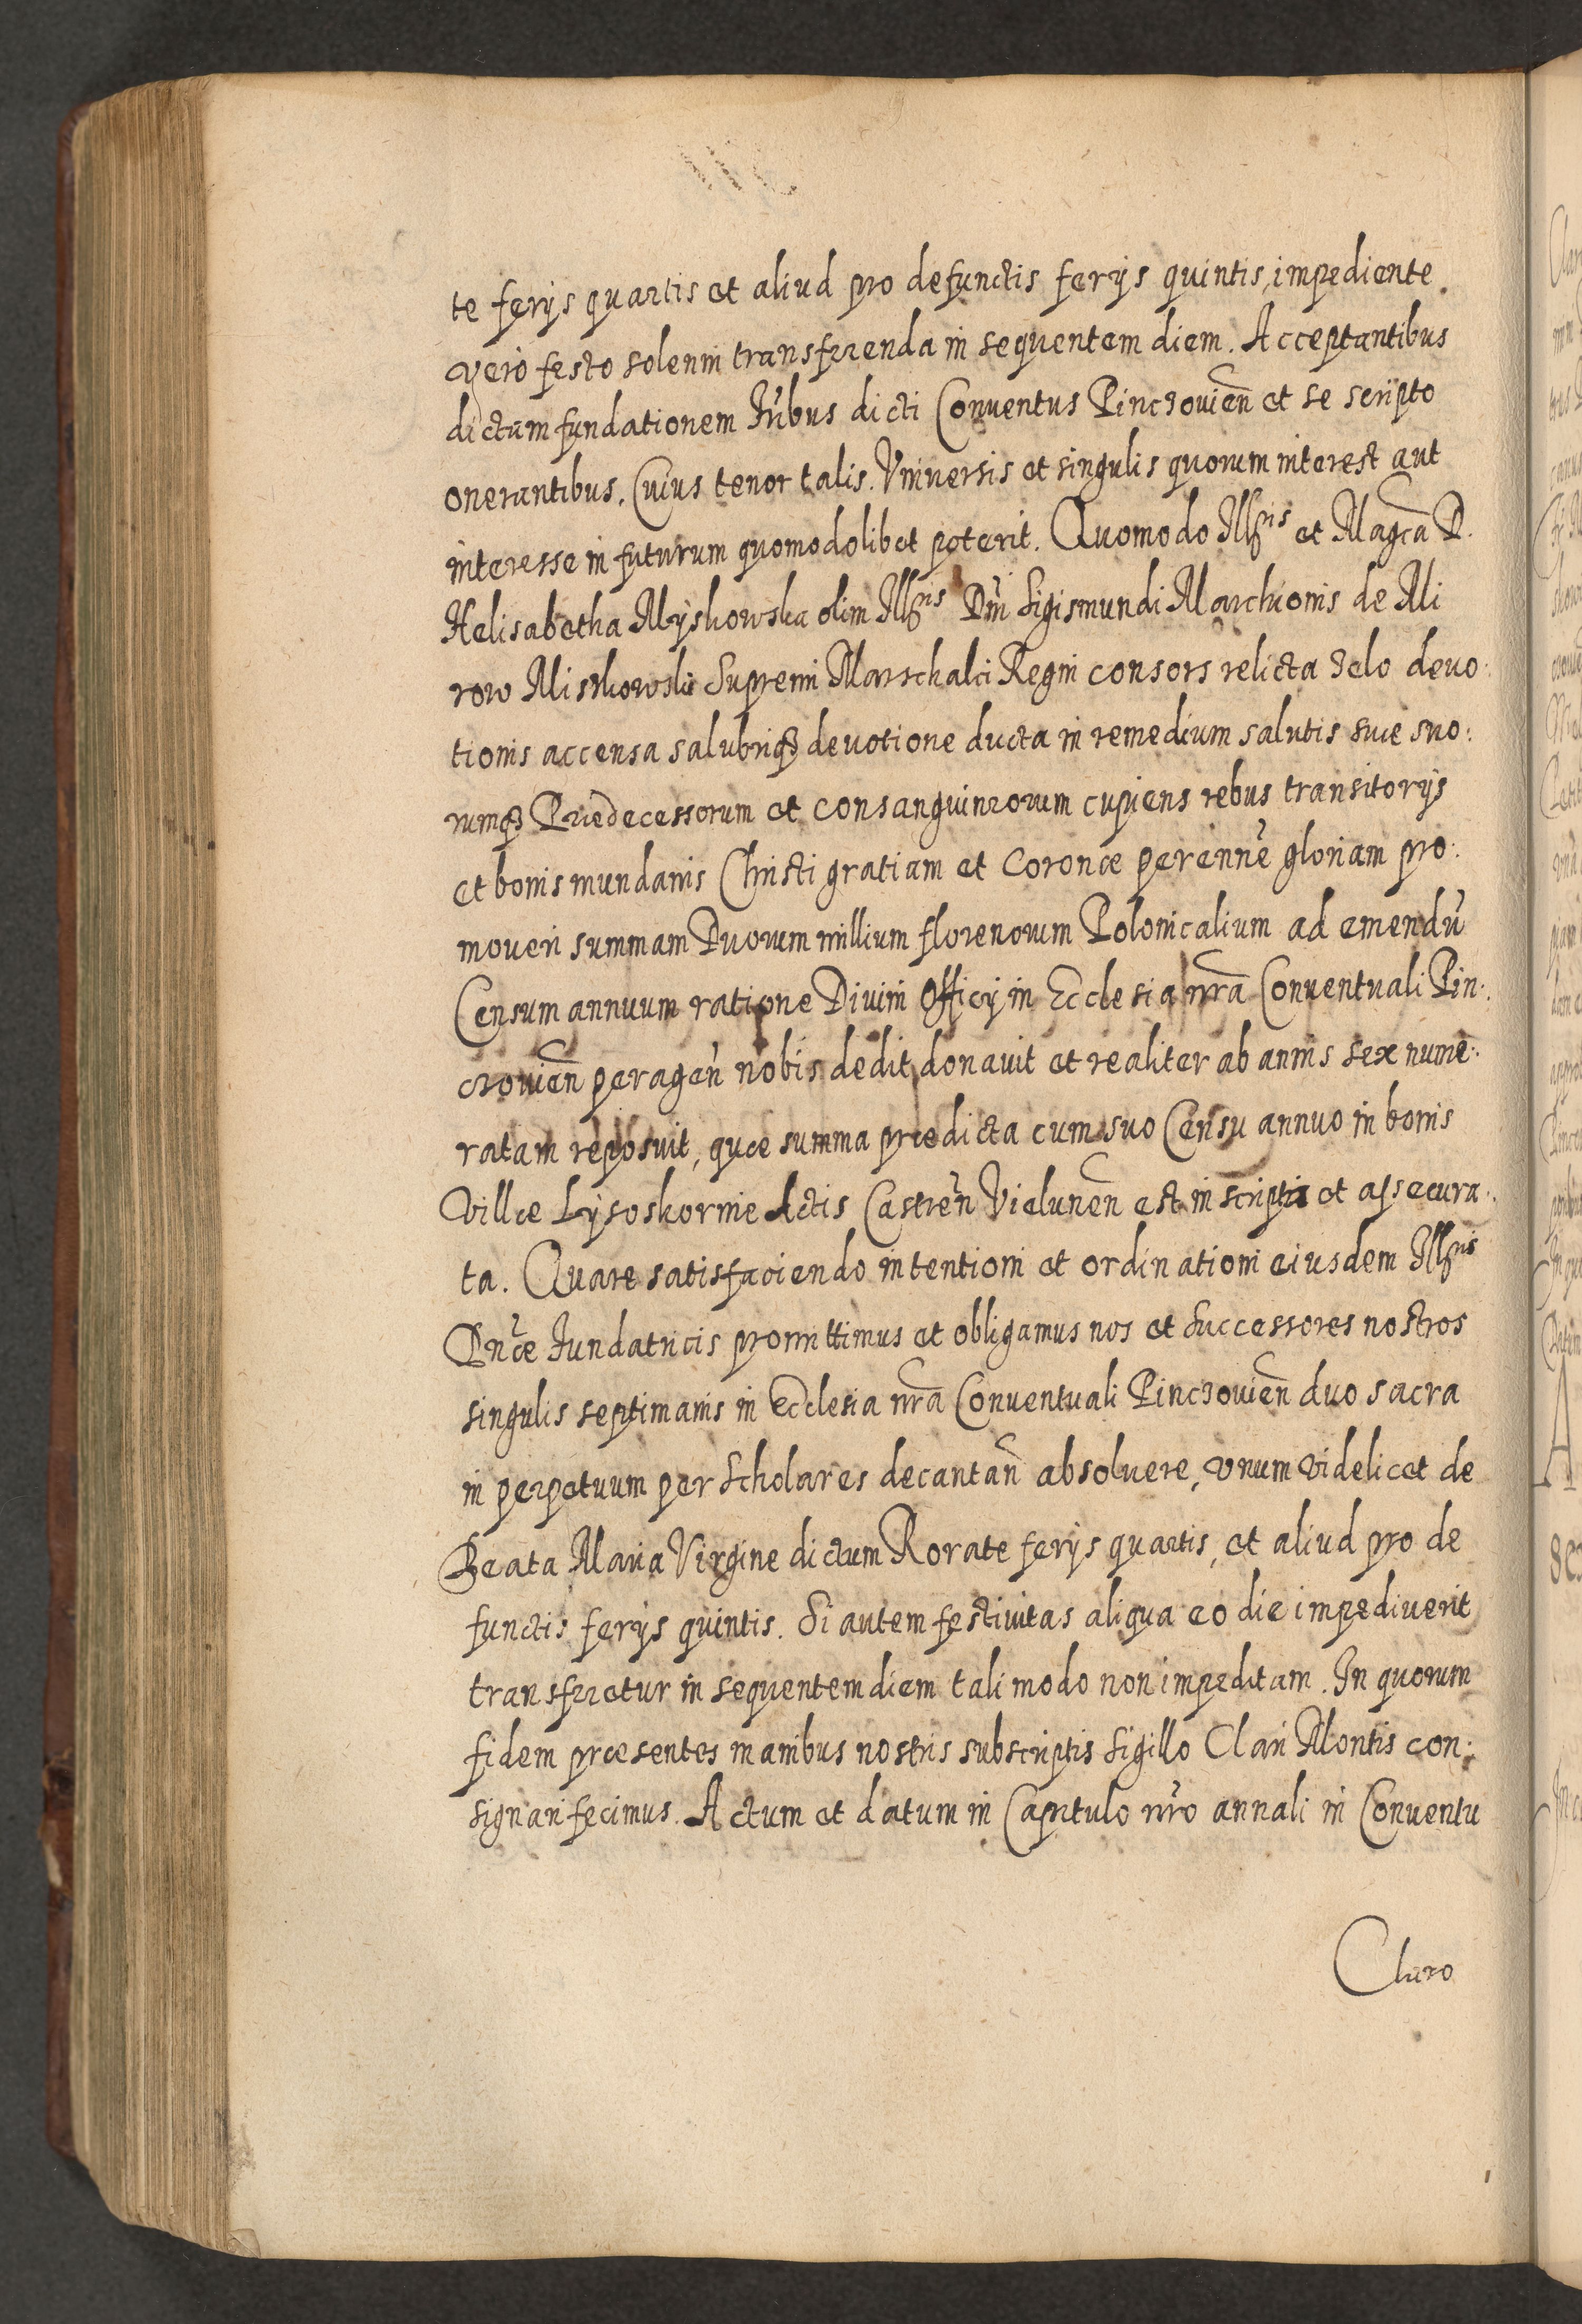 te ferijs quartis et aliud pro defunctis ferijs quintis, impediente
vero festo solenni transferrenda in sequentem diem. Acceptantibus
dictam fundationem Frībus dicti Conuentus Pinczouień et se scripto
onerantibus. Cuius tenor talis. Vniuersis et singulis quorum interest aut
interesse in futurum quomodolibet poterit. Quomodo Illris et Magca D.
Helisabetha Myskowska olim Illris Dni Sigismundi Marchionis de Mi
row Miskowski Supremi Marschalci Regni consors relicta zelo deuo:
tionis accensa salubriqꝫ deuotione ducta in remedium salutis suæ suo:
rumqꝫ Prædecessorum et consanguineorum cupiens rebus transitorijs
et bonis mundanis Christi gratiam et Coronæ perennē gloriam pro:
moueri summam Duorum millium florenorum Polonicalium ad emendū
Censum annuum ratione Diuini Officij in Ecclesia nrā Conuentuali Pin:
czouień perageń nobis dedit, donauit et realiter ab annis sex nume:
ratam reposuit, quæ summa prædicta cum suo Censu annuo in bonis
Villæ Lysoskornie Actis Castreń Vieluneń est inscripta et assecura:
ta. Quare satisfaciendo intentioni et ordinationi eiusdem Illris
Dnæ Fundatricis promittimus et obligamus nos et Successores nostros
singulis septimanis in Ecclesia nrā Conuentuali Pinczouień duo sacra
in perpetuum per Scholares decantań absoluere, vnum videlicet de
Beata Maria Virgine dictum Rorate ferijs quartis, et aliud pro de
functis ferijs quintis. Si autem festiuitas aliqua eo die impediuerit
transferretur in sequentem diem tali modo non impeditam. In quorum
fidem præsentes manibus nostris subscriptis Sigillo Clari Montis con:
signari fecimus. Actum et datum in Capitulo nrō annali in Conuentu
Claro